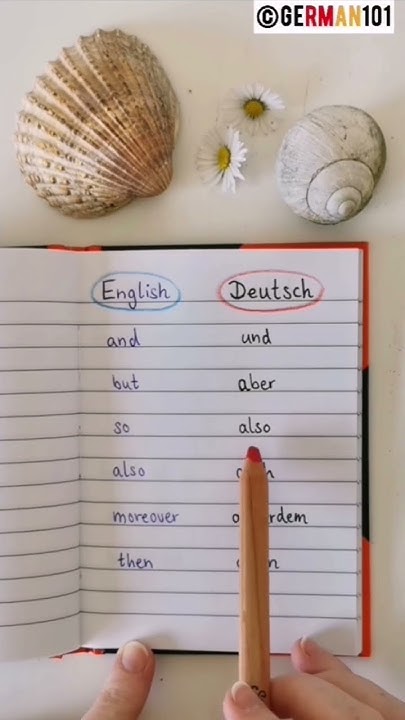 ©GERMAN101
English Deutsch
and und
but aber
so also
also
moreover
then